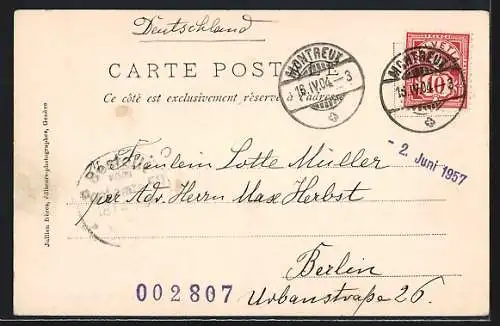 Deutschland
CARTE POSTALE
Ce côté est exclusivement réservé à l'adresse
MONTREUX
16.IV.04. – 3
MONTREUX
16.IV.04. – 3
HELVETIA
10
- 2. Juni 1957
Fräulein Lotte Müller
per Adr. Herrn Max Herbst
Berlin
Urbanstraße 26.
002807
Bestellt
vom
Jullien frères, éditeurs-photographes, Genève